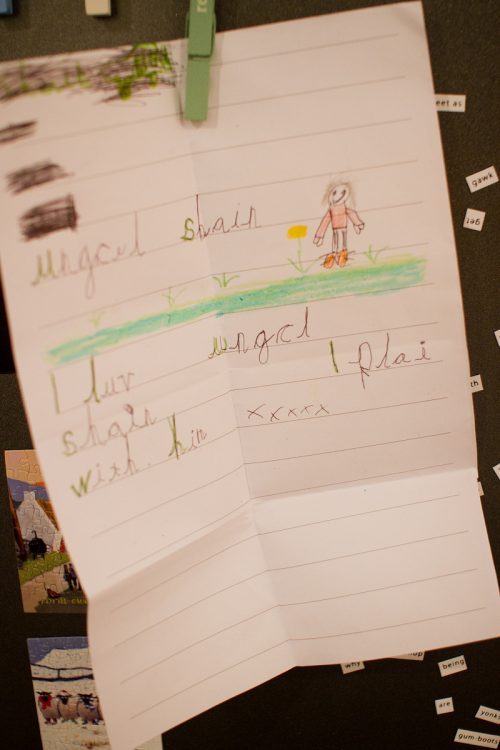 eet as
gawk
get
ungcul shain
I luv ungcl
I plai
shain
with him xxxxx
th
why
up
being
are
yonks
gum-boots